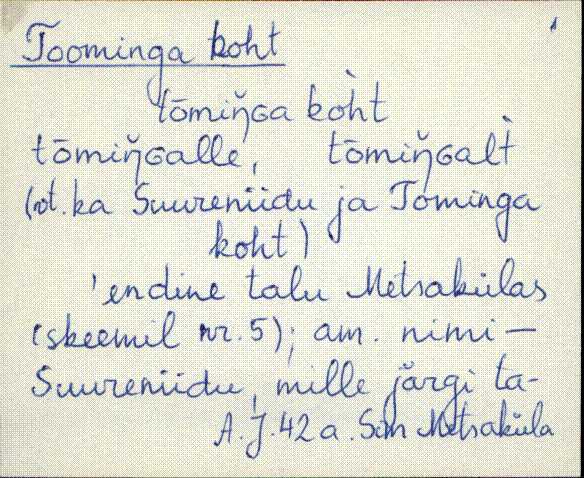 Toominga koht
tōmiŋ̆ɢa koh̀t
tōmiŋ̆ɢalle, tōmiŋ̆ɢalt̀
(vt. ka Suureniidu ja Tominga
koht)
'endine talu Metsakülas
(skeemil nr. 5); am. nimi —
Suureniidu, mille järgi ta-
A.J. 42 a. Sim Metsaküla